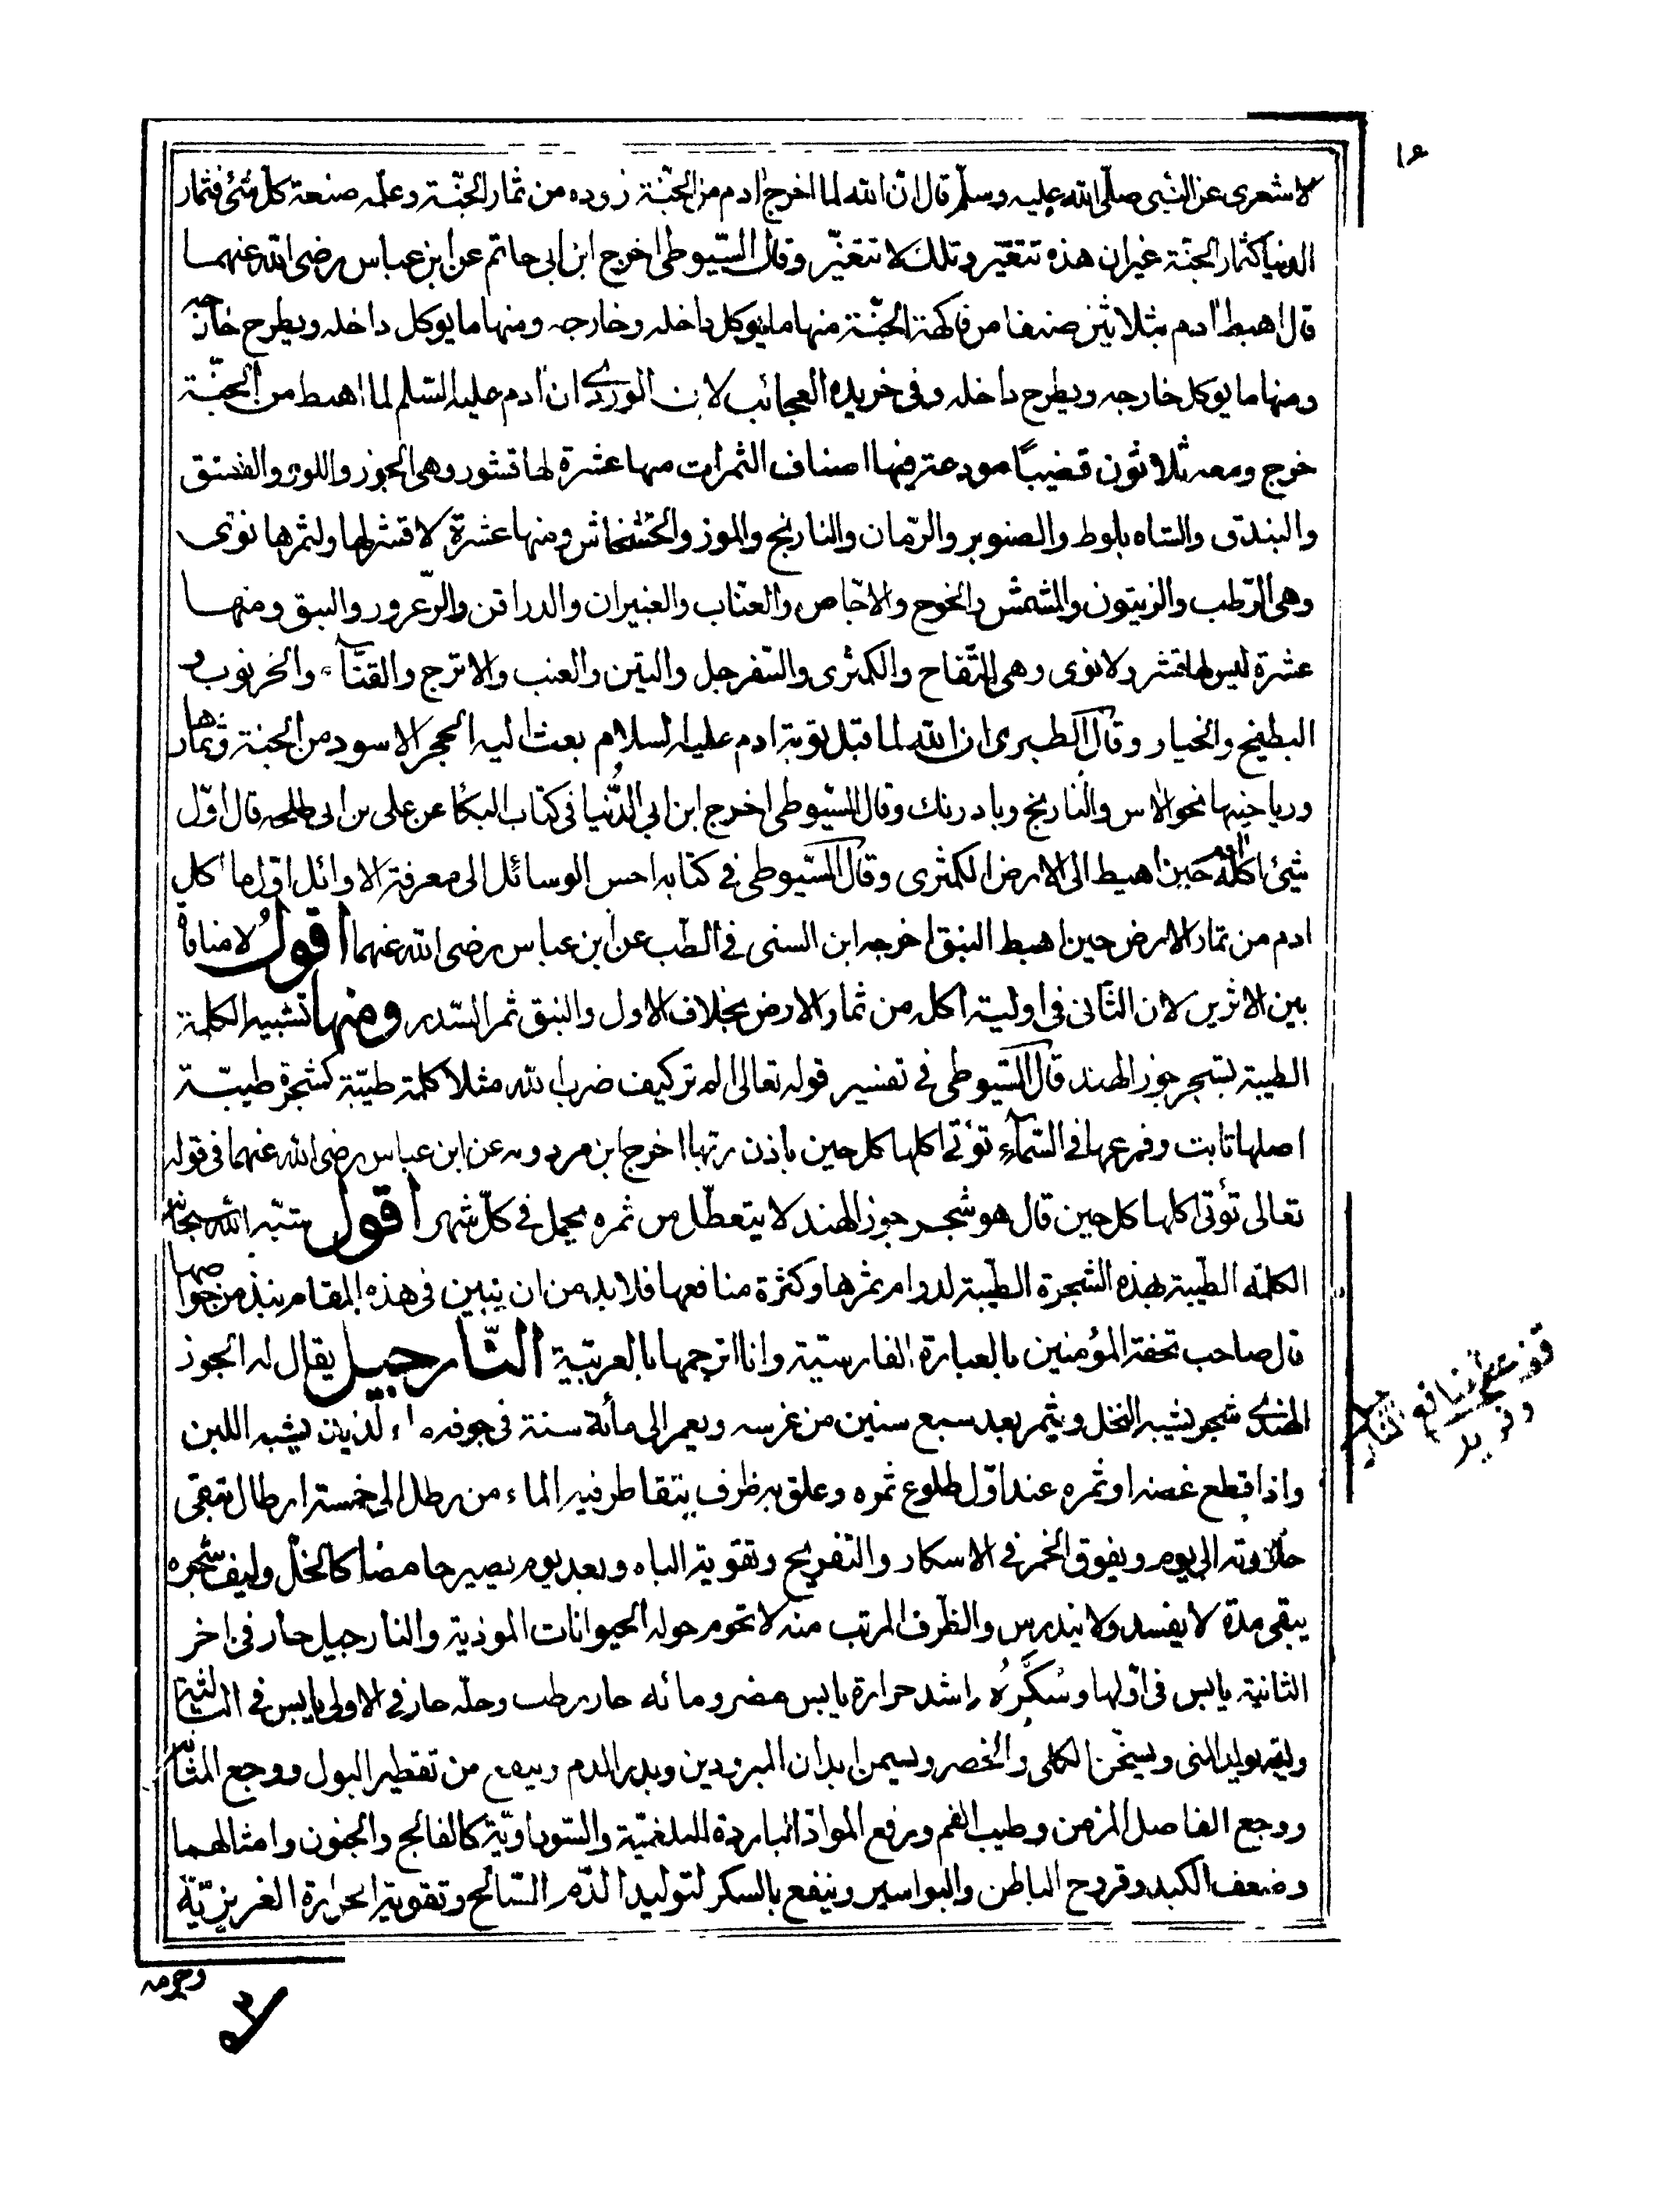 ١٤
لاشعرى عن النبى صلّى الله عليه وسلّم قال انّ الله لما اخرج ادم من الجنّة زوده من ثمار الجنّة وعلّمه صنعة كلّ شئ فثمار
الدنيا كثمار الجنّة غير ان هذه تتغيّر وتلك لا تتغيّر وقال السّيوطى اخرج ابن ابى حاتم عن ابن عباس رضى الله عنهما
قال اهبط ادم بثلاثين صنفا من فاكهة الجنّة منها ما يوكل داخله وخارجه ومنها ما يوكل داخله ويطرح خارجه
ومنها ما يوكل خارجه ويطرح داخله وفى خريدة العجائب لابن الوردى ان ادم عليه السّلم لما اهبط من الجنّة
خرج ومعه ثلاثون قضيبًا مودعة فيها اصناف الثمرات منها عشرة لها قشور وهى الجوز واللوز والفستق
والبندق والشاه بلوط والصنوبر والرّمان والنارنج والموز والخشخاش ومنها عشرة لا قشر لها ولثمرها نوى
وهى الرّطب والزيتون والمشمش والخوخ والاجّاص والعنّاب والغبيران والدراقن والزّعرور والنبق ومنها
عشرة ليس لها قشر ولا نوى وهى التّفاح والكمثرى والسّفرجل والتين والعنب والاترج والقثّآء والخرنوب و
البطيخ والخيار وقال الطبرى ان الله لما قبل توبة ادم عليه السلام بعث اليه الحجر الاسود من الجنة وثمارها
ورياحينها نحو الاس والنارنج وبادرنك وقال السّيوطى اخرج ابن ابي الدُّنيا فى كتاب البكا عن على بن ابى طلحه قال اوّل
شيئ اكله ادم حين اهبط الى الارض الكمثرى وقال السّيوطى فى كتابه احسن الوسائل الى معرفة الاوائل اوّل ما اكل
ادم من ثمار الارض حين اهبط النبق اخرجه ابن السنى فى الطّب عن ابن عباس رضى الله عنهما اقولُ لا منافاة
بين الاثرين لان الثّانى فى اولية اكله من ثمار الارض بخلاف الاول والنبق ثمر السّدر ومنها تشبيه الكلمة
الطيبة بشجر جوز الهند قال السّيوطى فى تفسير قوله تعالى الم تر كيف ضرب الله مثلا كلمة طيّبة كشجرة طيبّة
اصلها ثابت وفرعها فى السّمآء تؤتى اكلها كل حين باذن ربّها اخرج ابن مردويه عن ابن عباس رضى الله عنهما فى قوله
تعالى تؤتى اكلها كل حين قال هو شجر جوز الهند لا يتعطّل من ثمره يحمل فى كلّ شهر اقول شبّه الله سبحانه
الكلمة الطيّبة بهذه الشجرة الطيّبة لدوام ثمرها وكثرة منافعها فلابد من ان يتبين فى هذه المقام نبذ من خواصها
قال صاحب تحفة المؤمنين بالعبارة الفارسيّة وانا اترجمها بالعربيّة النّارجيل يقال له الجوز
الهندى شجر يشبه النخل ويثمر بعد سبع سنين من غرسه ويعمر الى مأئة سنة فى جوفه ماء لذيذ يشبه اللبن
واذا قطع غصنه او ثمره عند اوّل طلوع ثمره وعلق به ظرف يتقاطر فيه الماء من رطل الى خمسة ارطال تبقى
حلاوته الى يوم ويفوق الخمر فى الاسكار والتفريح وتقوية الباه وبعد يوم يصير حامضا كالخلّ وليف شجره
يبقى مدة لا يفسد ولا يندرس والظّرف المرتب منه لا تحوم حوله الحيوانات الموذية والنارجيل حار فى اخر
الثانية يابس فى اوّلها وسُكَّرُه اشد حرارة يابس مضر ومائه حار رطب وخلّه حار فى الاولى يابس فى الثالثة
ولبّه يولد المنى ويسخّن الكلى والخصر ويسمن ابدان المبرودين ويدر الدم وينفع من تقطير البول ووجع المثانة
ووجع المفاصل المزمن وطيب الفم ويرفع الموادّ الباردة البلغميّة والسّوداويّة كالفالج والجنون وامثالهما
وضعف الكبد وقروح الباطن والبواسير وينفع بالسكر لتوليد الدّم الصّالح وتقوية الحرارة الغريزيّة
منافع